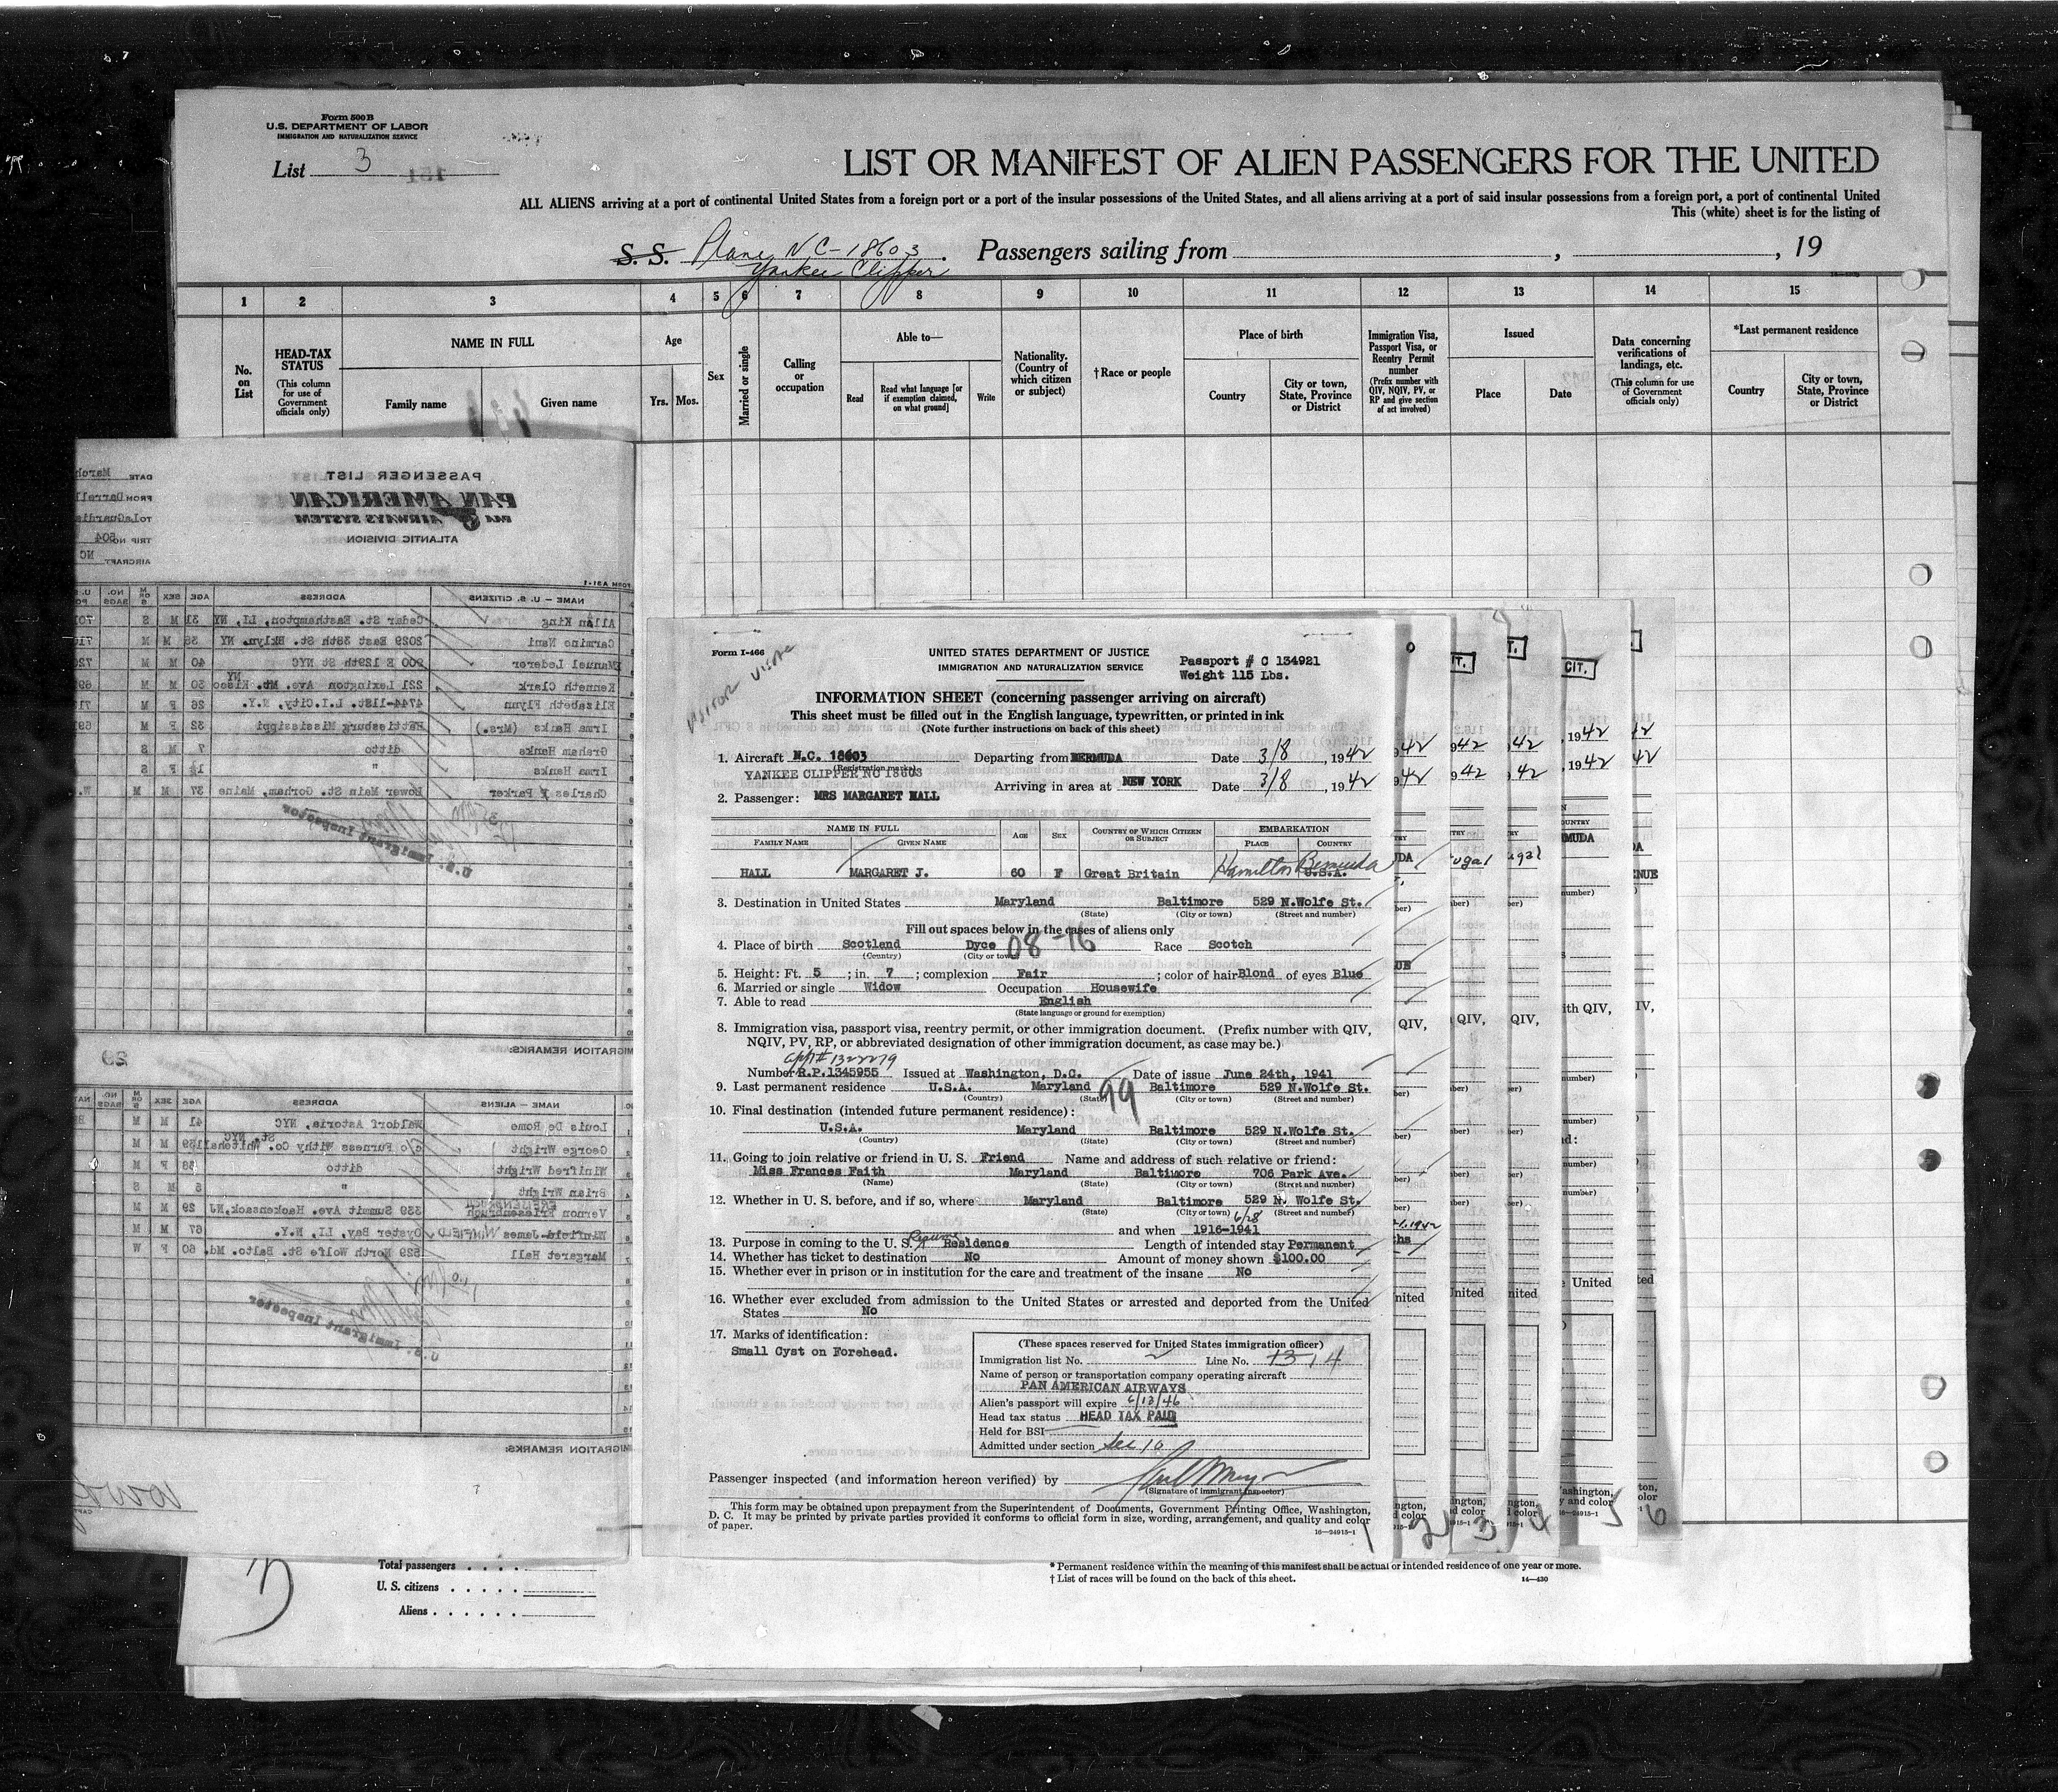 Form 500 B
U.S. DEPARTMENT OF LABOR
IMMIGRATION AND NATURALIZATION SERVICE
List 3
151
LIST OR MANIFEST OF ALIEN PASSENGERS FOR THE UNITED
ALL ALIENS arriving at a port of continental United States from a foreign port or a port of the insular possessions of the United States, and all aliens arriving at a port of said insular possessions from a foreign port, a port of continental United
This (white) sheet is for the listing of
S. S. Plane NC-18603 . Passengers sailing from , , 19
Yankee Clipper
1 2 3 4 5 6 7 8 9 10 11 12 13 14 15
No. on List
HEAD-TAX STATUS (This column for use of Government officials only)
NAME IN FULL
Family name Given name
Age
Yrs. Mos.
Sex
Married or single
Calling or occupation
Able to—
Read
Read what language [or if exemption claimed, on what ground]
Write
Nationality. (Country of which citizen or subject)
†Race or people
Place of birth
Country
City or town, State, Province or District
Immigration Visa, Passport Visa, or Reentry Permit number (Prefix number with QIV, NQIV, PV, or RP and give section of act involved)
Issued
Place Date
Data concerning verifications of landings, etc. (This column for use of Government officials only)
*Last permanent residence
Country
City or town, State, Province or District
PASSENGER LIST
PAN AMERICAN
PAA AIRWAYS SYSTEM
ATLANTIC DIVISION
DATE March
FROM Darrell
TO LaGuardia
TRIP NO. 504
AIRCRAFT NC
FORM A31-1
NAME — U. S. CITIZENS ADDRESS AGE SEX M OR S NO. BAGS
Allan King Cedar St. Easthampton, LI, NY 31 M S
Carmine Nani 2029 East 38th St. Bklyn. NY 36 M M
Manuel Lederer 900 E 129th St NYC 40 M M
Kenneth Clark 221 Lexington Ave. Mt. Kisco NY 30 M M
Elizabeth Flynn 4744-11st. L.I.City, N.Y. 26 F M
Irma Hanks (Mrs.) Hattiesburg Mississippi 32 F M
Graham Hanks ditto 7 M S
Irma Hanks " 1½ F S
Charles F Parker Lower Main St. Gorham, Maine 37 M M
U.S. Immigrant Inspector
IMMIGRATION REMARKS:
29
NAME — ALIENS ADDRESS AGE SEX M OR S NO. BAGS
Louis De Rome Waldorf Astoria, NYC 41 M M
George Wright c/o Furness Withy Co. Whitehall St. NYC 39 M M
Winifred Wright ditto 38 F M
Brian Wright " 5 M S
Vernon Friesenbruch 339 Summit Ave. Hackensack, NJ 29 M M
Winfield James WINFIELD Oyster Bay, LI, N.Y. 67 M M
Margaret Hall 529 North Wolfe St. Balto. Md. 60 F W
U.S. Immigrant Inspector
IMMIGRATION REMARKS:
Total passengers . . . .
U. S. citizens . . . . .
Aliens . . . . . .
Form I-466
UNITED STATES DEPARTMENT OF JUSTICE
IMMIGRATION AND NATURALIZATION SERVICE
Passport # C 134921
Weight 115 Lbs.
INFORMATION SHEET (concerning passenger arriving on aircraft)
This sheet must be filled out in the English language, typewritten, or printed in ink
(Note further instructions on back of this sheet)
1. Aircraft N.C. 18603 Departing from BERMUDA Date 3/8 , 1942
(Registration marks)
YANKEE CLIPPER NC 18603 Arriving in area at NEW YORK Date 3/8 , 1942
2. Passenger: MRS MARGARET HALL
NAME IN FULL AGE SEX COUNTRY OF WHICH CITIZEN OR SUBJECT EMBARKATION
FAMILY NAME GIVEN NAME PLACE COUNTRY
HALL MARGARET J. 60 F Great Britain Hamilton Bermuda U.S.A.
3. Destination in United States Maryland Baltimore 529 N.Wolfe St.
(State) (City or town) (Street and number)
Fill out spaces below in the cases of aliens only
4. Place of birth Scotland Dyce 08-16 Race Scotch
(Country) (City or town)
5. Height: Ft. 5 ; in. 7 ; complexion Fair ; color of hair Blond of eyes Blue
6. Married or single Widow Occupation Housewife
7. Able to read English
(State language or ground for exemption)
8. Immigration visa, passport visa, reentry permit, or other immigration document. (Prefix number with QIV,
NQIV, PV, RP, or abbreviated designation of other immigration document, as case may be.)
appl # 1322279
Number R.P.1345955 Issued at Washington, D.C. Date of issue June 24th, 1941
9. Last permanent residence U.S.A. Maryland 99 Baltimore 529 N.Wolfe St.
(Country) (State) (City or town) (Street and number)
10. Final destination (intended future permanent residence):
U.S.A. Maryland Baltimore 529 N.Wolfe St.
(Country) (State) (City or town) (Street and number)
11. Going to join relative or friend in U. S. Friend Name and address of such relative or friend:
Miss Frances Faith Maryland Baltimore 706 Park Ave.
(Name) (State) (City or town) (Street and number)
12. Whether in U. S. before, and if so, where Maryland Baltimore 529 N. Wolfe St.
(State) (City or town) (Street and number)
6/28
and when 1916-1941
13. Purpose in coming to the U. S. Resume Residence Length of intended stay Permanent
14. Whether has ticket to destination No Amount of money shown $100.00
15. Whether ever in prison or in institution for the care and treatment of the insane No
16. Whether ever excluded from admission to the United States or arrested and deported from the United
States No
17. Marks of identification:
Small Cyst on Forehead.
(These spaces reserved for United States immigration officer)
Immigration list No. 2 Line No. 13 14
Name of person or transportation company operating aircraft
PAN AMERICAN AIRWAYS
Alien's passport will expire 6/13/46
Head tax status HEAD TAX PAID
Held for BSI
Admitted under section Sec 10
Passenger inspected (and information hereon verified) by
(Signature of immigrant inspector)
This form may be obtained upon prepayment from the Superintendent of Documents, Government Printing Office, Washington,
D. C. It may be printed by private parties provided it conforms to official form in size, wording, arrangement, and quality and color
of paper.
16—24915-1
1 2 3 4 5 6
* Permanent residence within the meaning of this manifest shall be actual or intended residence of one year or more.
† List of races will be found on the back of this sheet.
14—430